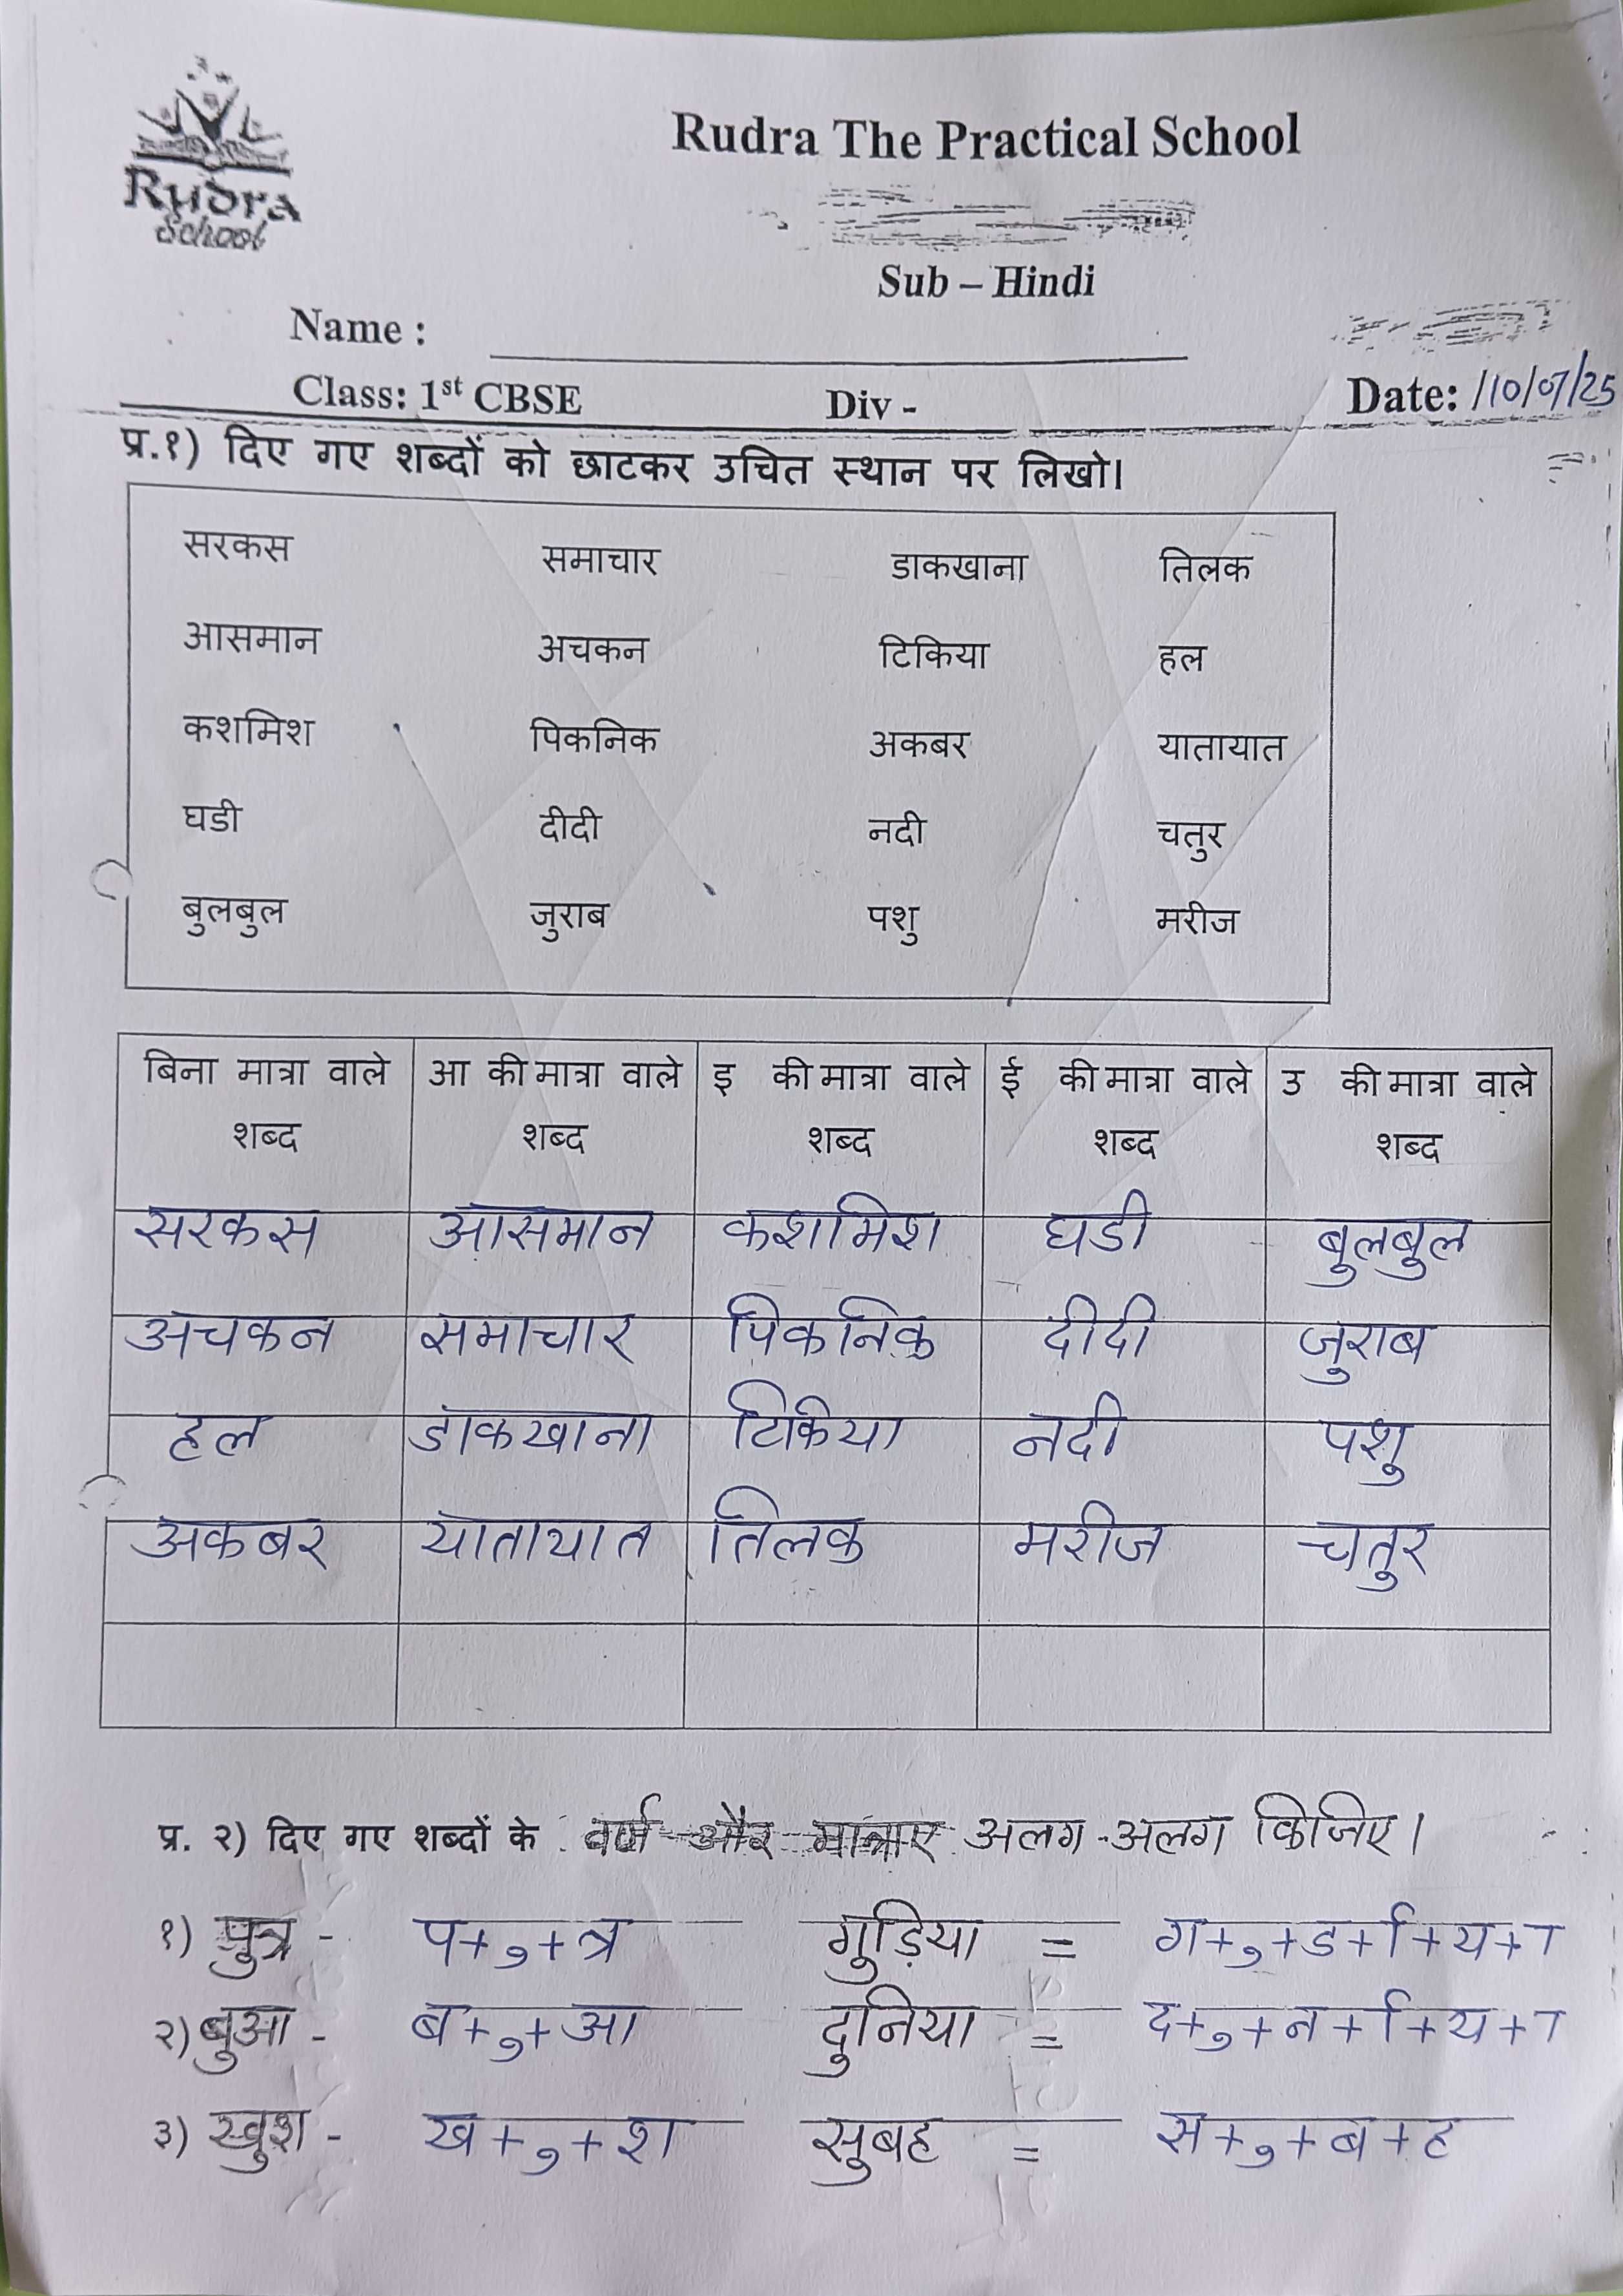 Rudra School
Rudra The Practical School
Sub – Hindi
Name :
Class: 1st CBSE Div - Date: /10/07/25
प्र.१) दिए गए शब्दों को छाटकर उचित स्थान पर लिखो।
सरकस समाचार डाकखाना तिलक
आसमान अचकन टिकिया हल
कशमिश पिकनिक अकबर यातायात
घडी दीदी नदी चतुर
बुलबुल जुराब पशु मरीज
बिना मात्रा वाले शब्द आ की मात्रा वाले शब्द इ की मात्रा वाले शब्द ई की मात्रा वाले शब्द उ की मात्रा वाले शब्द
सरकस आसमान कशमिश घडी बुलबुल
अचकन समाचार पिकनिक दीदी जुराब
हल डाकखाना टिकिया नदी पशु
अकबर यातायात तिलक मरीज चतुर
प्र. २) दिए गए शब्दों के वर्ण और मात्राए अलग-अलग किजिए।
१) पुत्र - प+ ु+त्र गुड़िया = ग+ ु+ड+ि+य+ा
२) बुआ - ब+ ु+आ दुनिया = द+ ु+न+ि+य+ा
३) खुश - ख+ ु+श सुबह = स+ ु+ब+ह